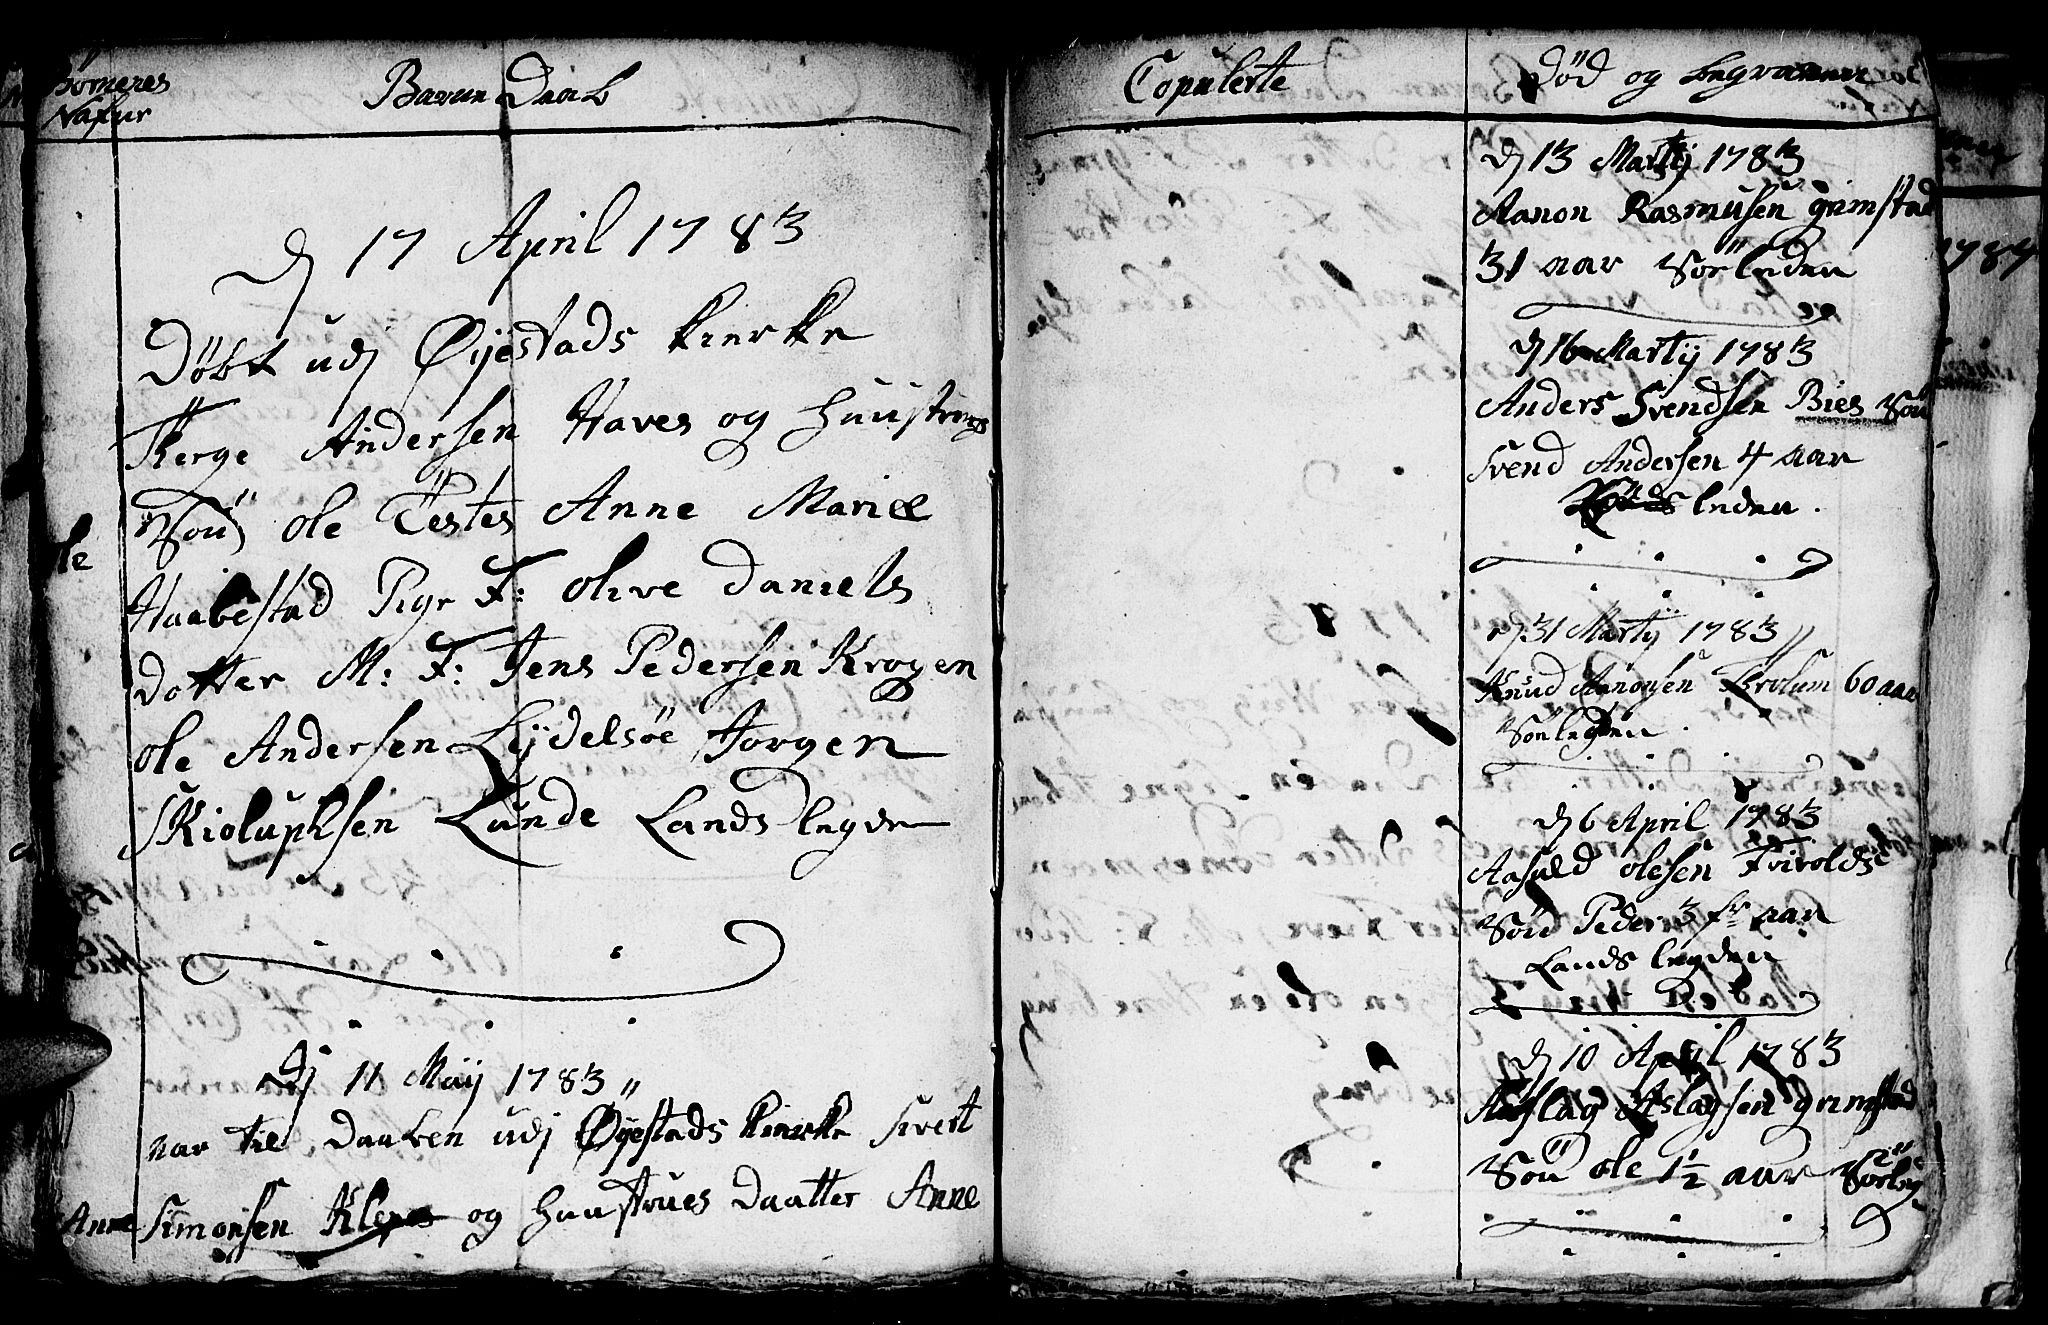 Börneres
Nafur
Barne Daab
D 17 April 1783
Döbt udj Øyestads Kierke
Terge Andersen Haves og Huustrues
Sön Ole Testes Anne Mariæ
Haabestad Pige F: Olive Daniels
Ole
Dotter M: F: Jens Pedersen Krogen
Ole Andersen Lÿdelsöe Jorgen
Skioluphsen Lunde Lands legden
Dj 11 Maij 1783
var til Daaben udj Øyestads Kierke Sivert
Anne
Simonsen Klepe og Huustrues Daatter Anne
Copulerte
Död og begravne
D 13 Martij 1783
Aanon Rasmusen Grimstad
31 aar Sörleden
D 16 Martij 1783
Anders Svendsen Bies Sön
Svend Andersen 4 aar
leden
D 31 Martij 1783
Knud Aanonsen 60 aar
Sörlegden
D 6 April 1783
Aasuld Olesen Froiolds
Sön Peder 3 aar
Lands legden
D 10 April 1783
Aaslag Aslagsen Grimstad
Sön Ole 1 1/2 aar Sörleg
1784